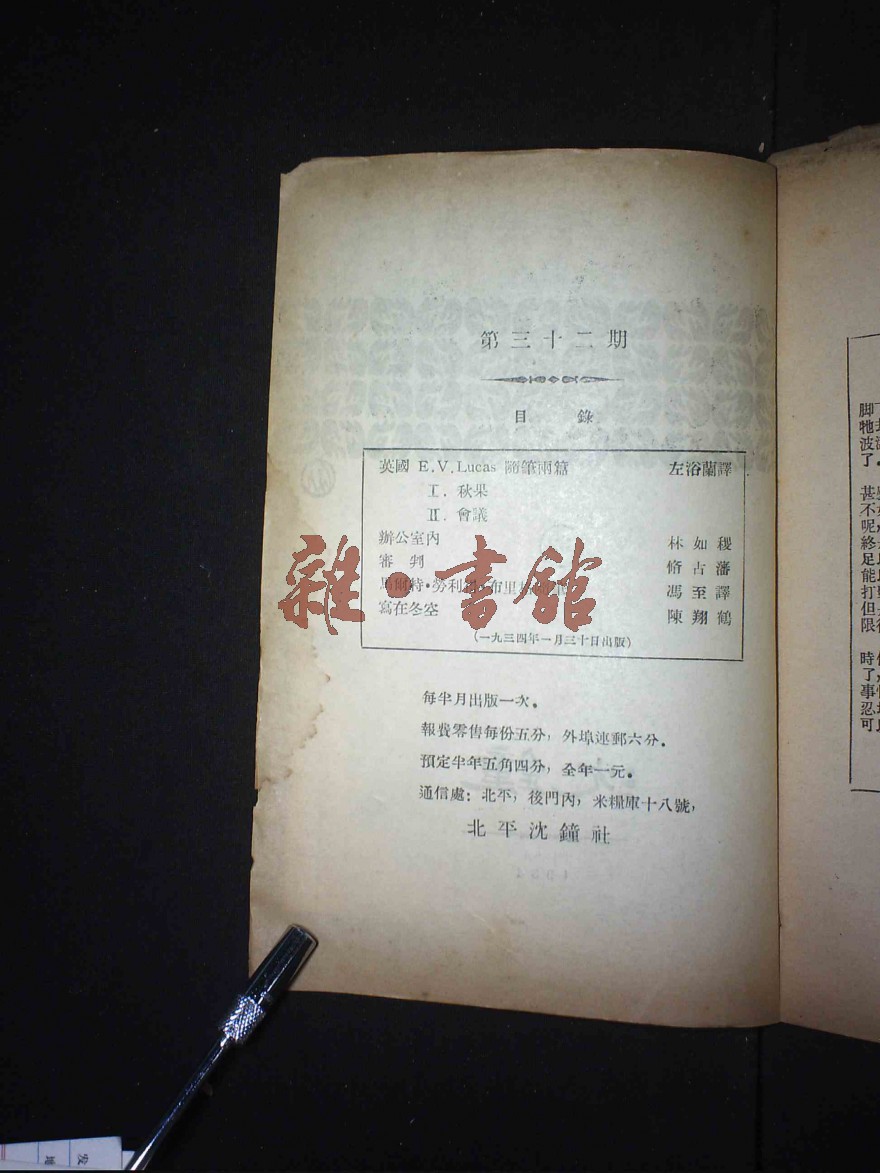 第三十二期
目錄
英國 E.V.Lucas 隨筆兩篇 左浴蘭譯
I. 秋果
II. 會議
辦公室內 林如稷
審判 脩古藩
馬爾特·勞利得·布里格 馮至譯
寫在冬空 陳翔鶴
(一九三四年一月三十日出版)
每半月出版一次。
報費零售每份五分,外埠連郵六分。
預定半年五角四分,全年一元。
通信處:北平,後門內,米糧庫十八號,
北平沈鐘社
雜·書館
脚下
牠
波
了。
甚
不
呢,
終
足
能
打
但
限
時
了,
事
忍
可
发
地